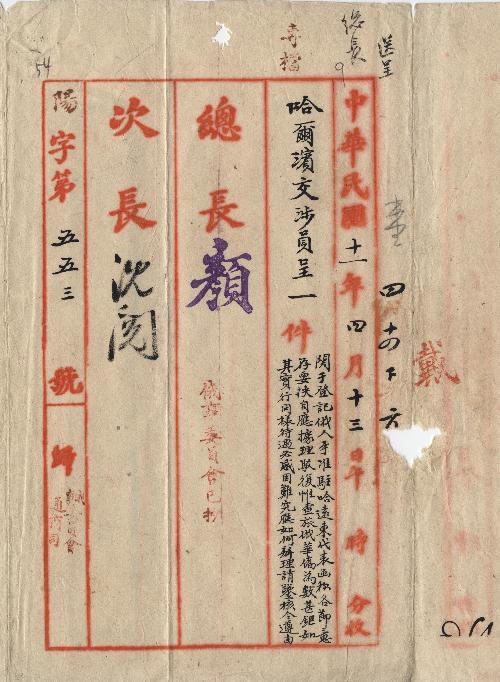 送呈
總長
專檔
四 十四 下 六
戴
中華民國十一年四月十三日午 時 分收
哈爾濱交涉員呈一件
關于登記俄人事准駐哈遠東代表函稱各節意
存要挾自應據理駁復惟查旅俄華僑為數甚鉅如
其實行同樣待遇必感困難究應如何辦理請鑒核令遵由
總長顏
委員會已抄
次長沈閱
陽字第五五三號
通商司
54